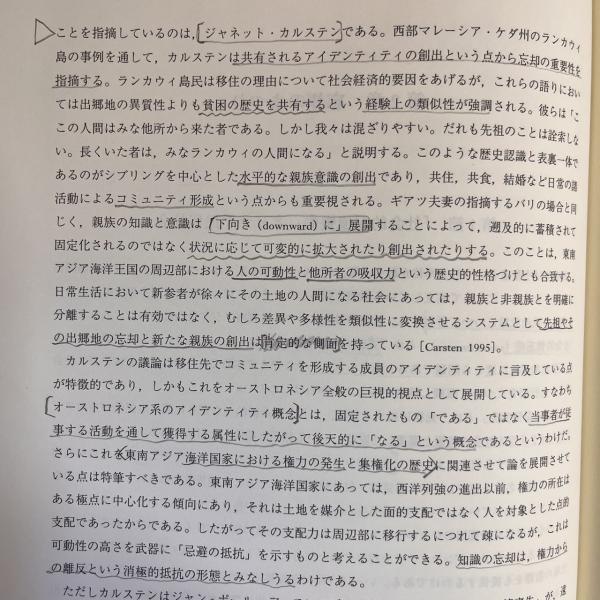 ことを指摘しているのは，ジャネット・カルステンである。西部マレーシア・ケダ州のランカウィ
島の事例を通して，カルステンは共有されるアイデンティティの創出という点から忘却の重要性を
指摘する。ランカウィ島民は移住の理由について社会経済的要因をあげるが，これらの語りにおい
ては出郷地の異質性よりも貧困の歴史を共有するという経験上の類似性が強調される。彼らは「こ
この人間はみな他所から来た者である。しかし我々は混ざりやすい。だれも先祖のことは詮索しな
い。長くいた者は，みなランカウィの人間になる」と説明する。このような歴史認識と表裏一体で
あるのがシブリングを中心とした水平的な親族意識の創出であり，共住，共食，結婚など日常の諸
活動によるコミュニティ形成という点からも重要視される。ギアツ夫妻の指摘するバリの場合と同
じく，親族の知識と意識は「下向き（downward）に」展開することによって，遡及的に蓄積されて
固定化されるのではなく状況に応じて可変的に拡大されたり創出されたりする。このことは，東南
アジア海洋王国の周辺部における人の可動性と他所者の吸収力という歴史的性格づけとも合致する。
日常生活において新参者が徐々にその土地の人間になる社会にあっては，親族と非親族とを明確に
分離することは有効ではなく，むしろ差異や多様性を類似性に変換させるシステムとして先祖やそ
の出郷地の忘却と新たな親族の創出は肯定的な側面を持っている［Carsten 1995］。
カルステンの議論は移住先でコミュニティを形成する成員のアイデンティティに言及している点
が特徴的であり，しかもこれをオーストロネシア全般の巨視的視点として展開している。すなわち
オーストロネシア系のアイデンティティ概念とは，固定されたもの「である」ではなく当事者が従
事する活動を通して獲得する属性にしたがって後天的に「なる」という概念であるというわけだ。
さらにこれを東南アジア海洋国家における権力の発生と集権化の歴史に関連させて論を展開させて
いる点は特筆すべきである。東南アジア海洋国家にあっては，西洋列強の進出以前，権力の所在は
ある極点に中心化する傾向にあり，それは土地を媒介とした面的支配ではなく人を対象とした点的
支配であったからである。したがってその支配力は周辺部に移行するにつれて疎になるが，これは
可動性の高さを武器に「忌避の抵抗」を示すものと考えることができる。知識の忘却は，権力から
の離反という消極的抵抗の形態とみなしうるわけである。
ただしカルステンはジャン